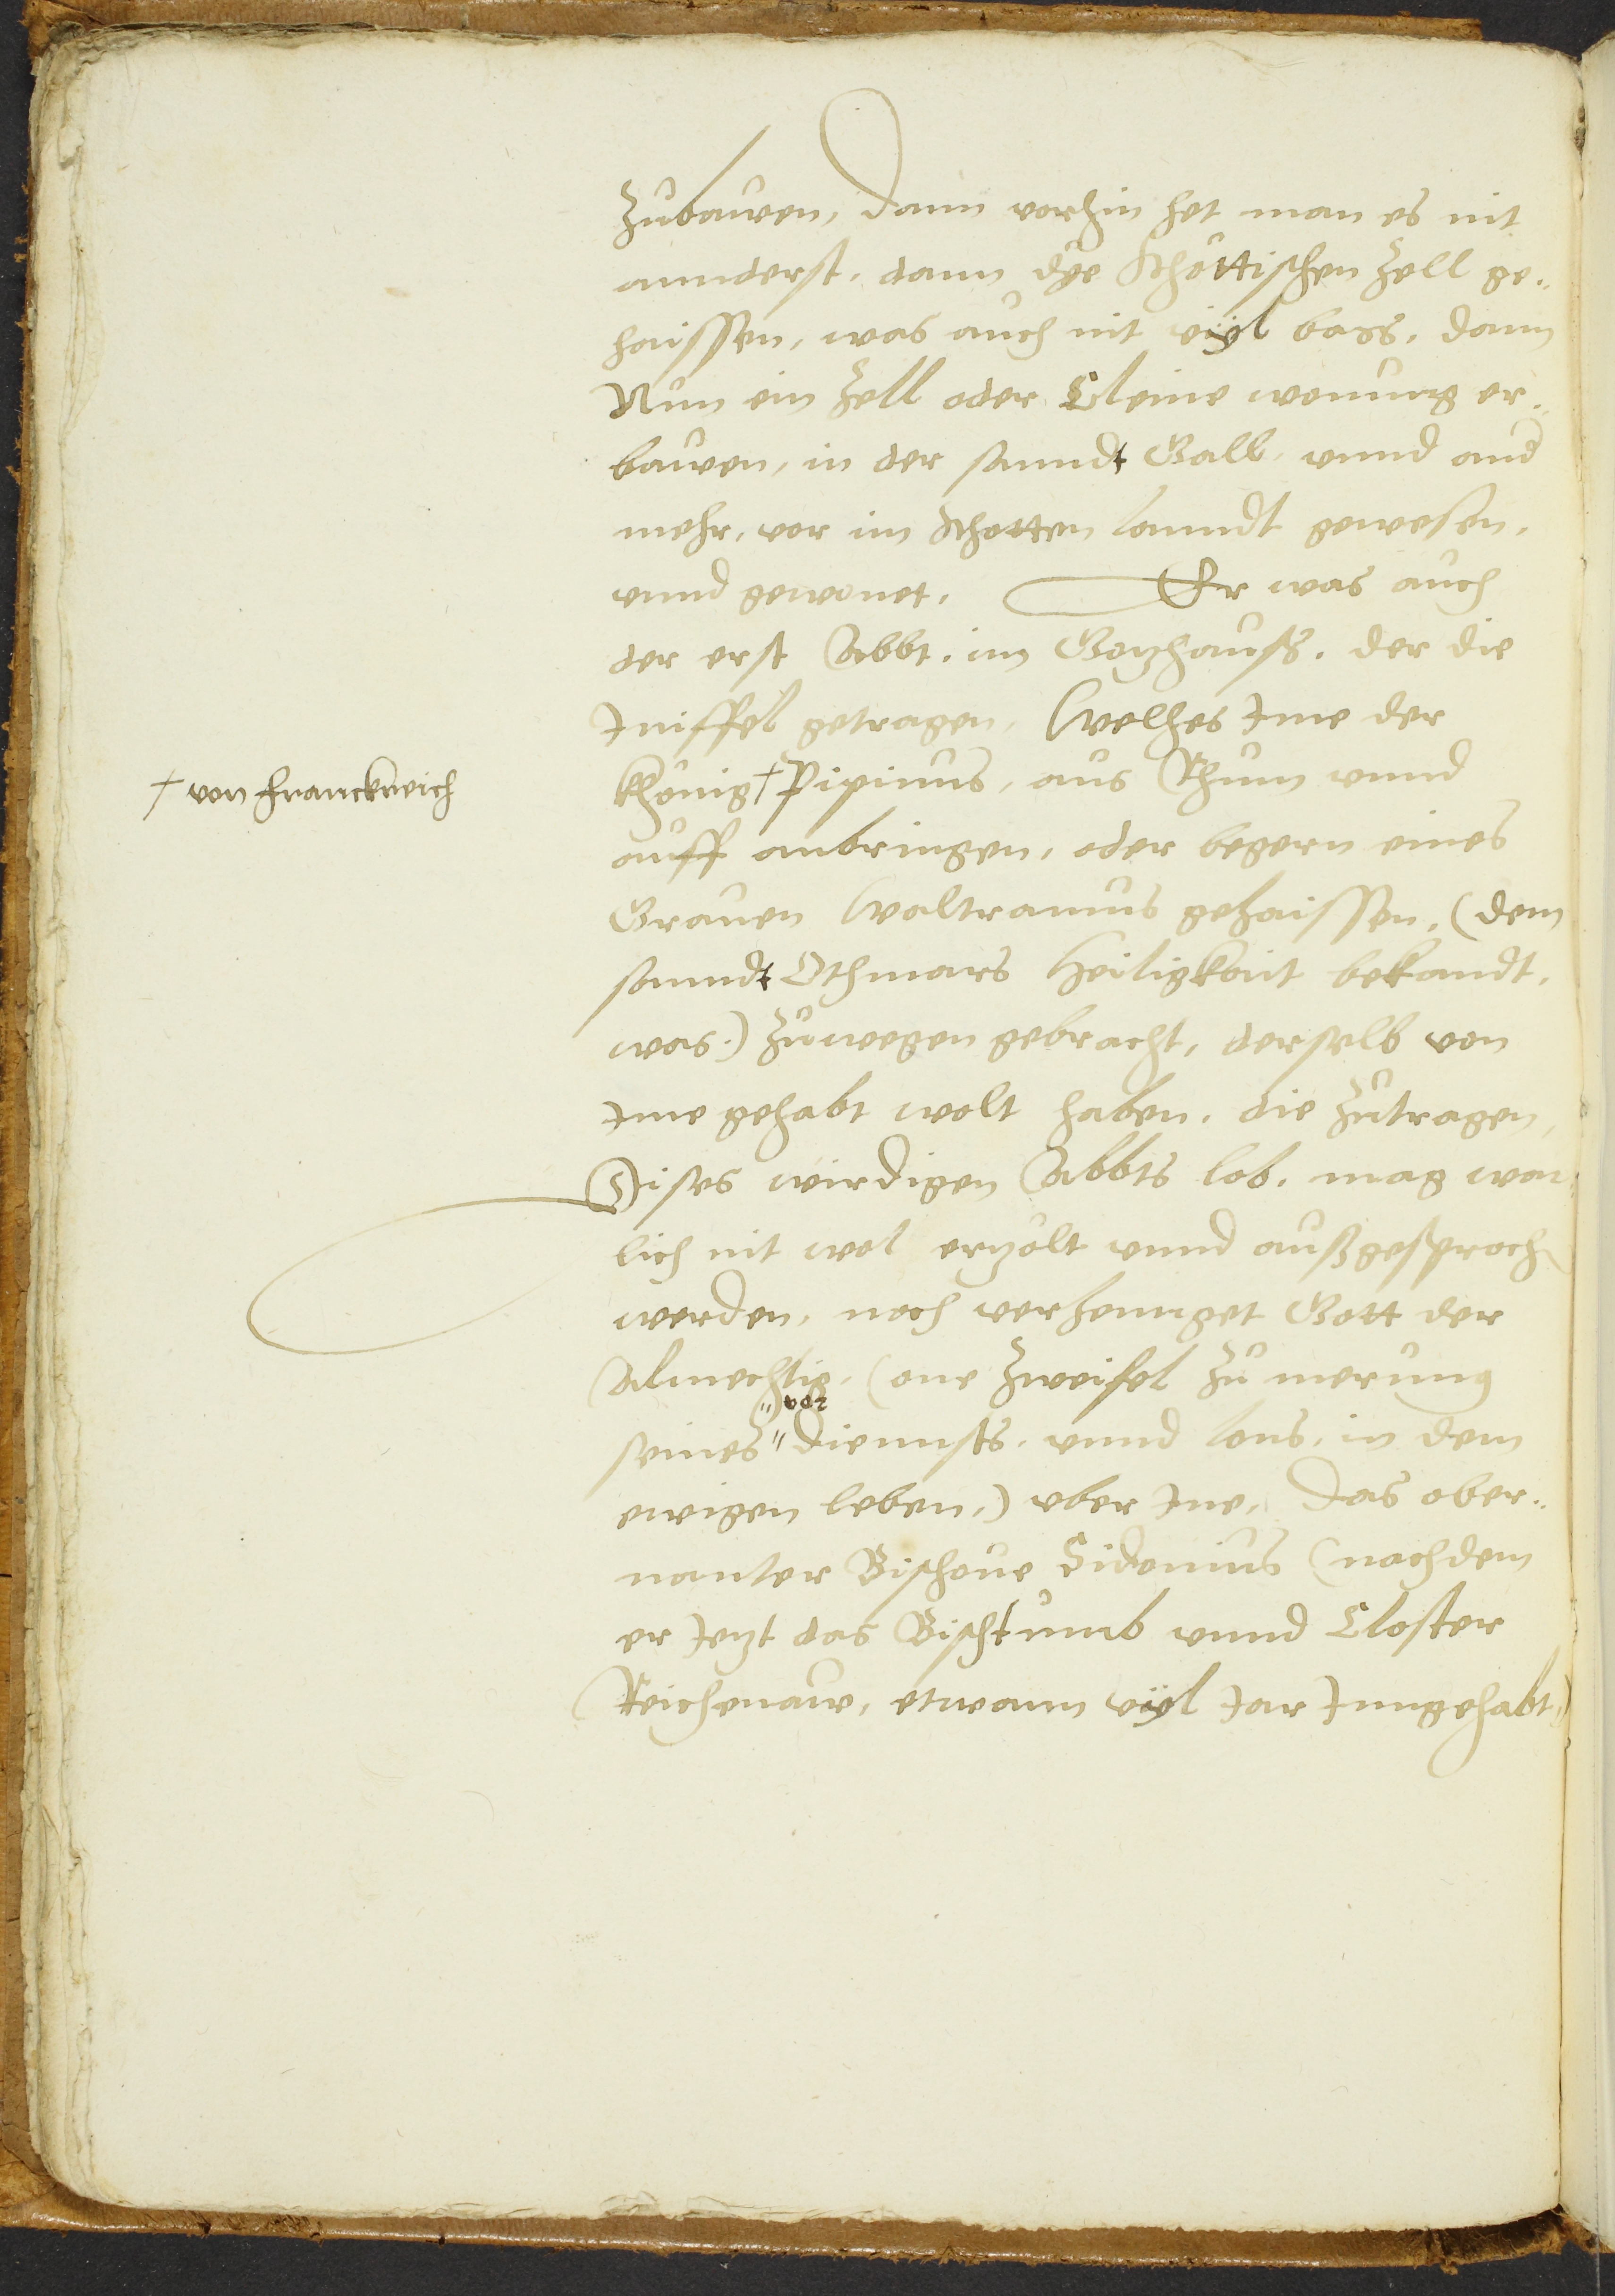 zubauwen, dann vorhin het man es nit
annderst, dann dye Schottischen Zell ge¬
haissen, was auch nit vÿl bass, dann
Nun ein Zell oder Cleine wonung er¬
bauwen, in der sanndt Gall, vnnd and
mehr, vor im Schotten lanndt gewesen,
vnnd gewonet. Er was auch
der erst Abbt, im Gotzhauss, der die
Inffel getragen, Welches Ime der
† von Franckreich
khönig † Pipinus, aus Rhum vnnd
auff anbringen, oder begern eines
Grauen Waltramus gehaissen, (dem
sanndt Othmars Heiligkeit bekandt,
was.) zuwegen gebracht, derselb von
Ime gehabt wolt haben, die zutragen,
Dises wirdigen Abbts lob, mag war¬
lich nit wol erzölt vnnd aussgesproch
werden, noch verhennget Gott der
Almechtig, (one Zweifel zu merung
" vor
seines " diennsts, vnnd lons, in dem
ewigen leben,) vber Ine, das ober¬
nanter Bischoue Sidonius (nachdem
er Jetzt das Bischtumb vnnd Closter
Reichenauw, etwann vÿl Jar Inngehabt,)